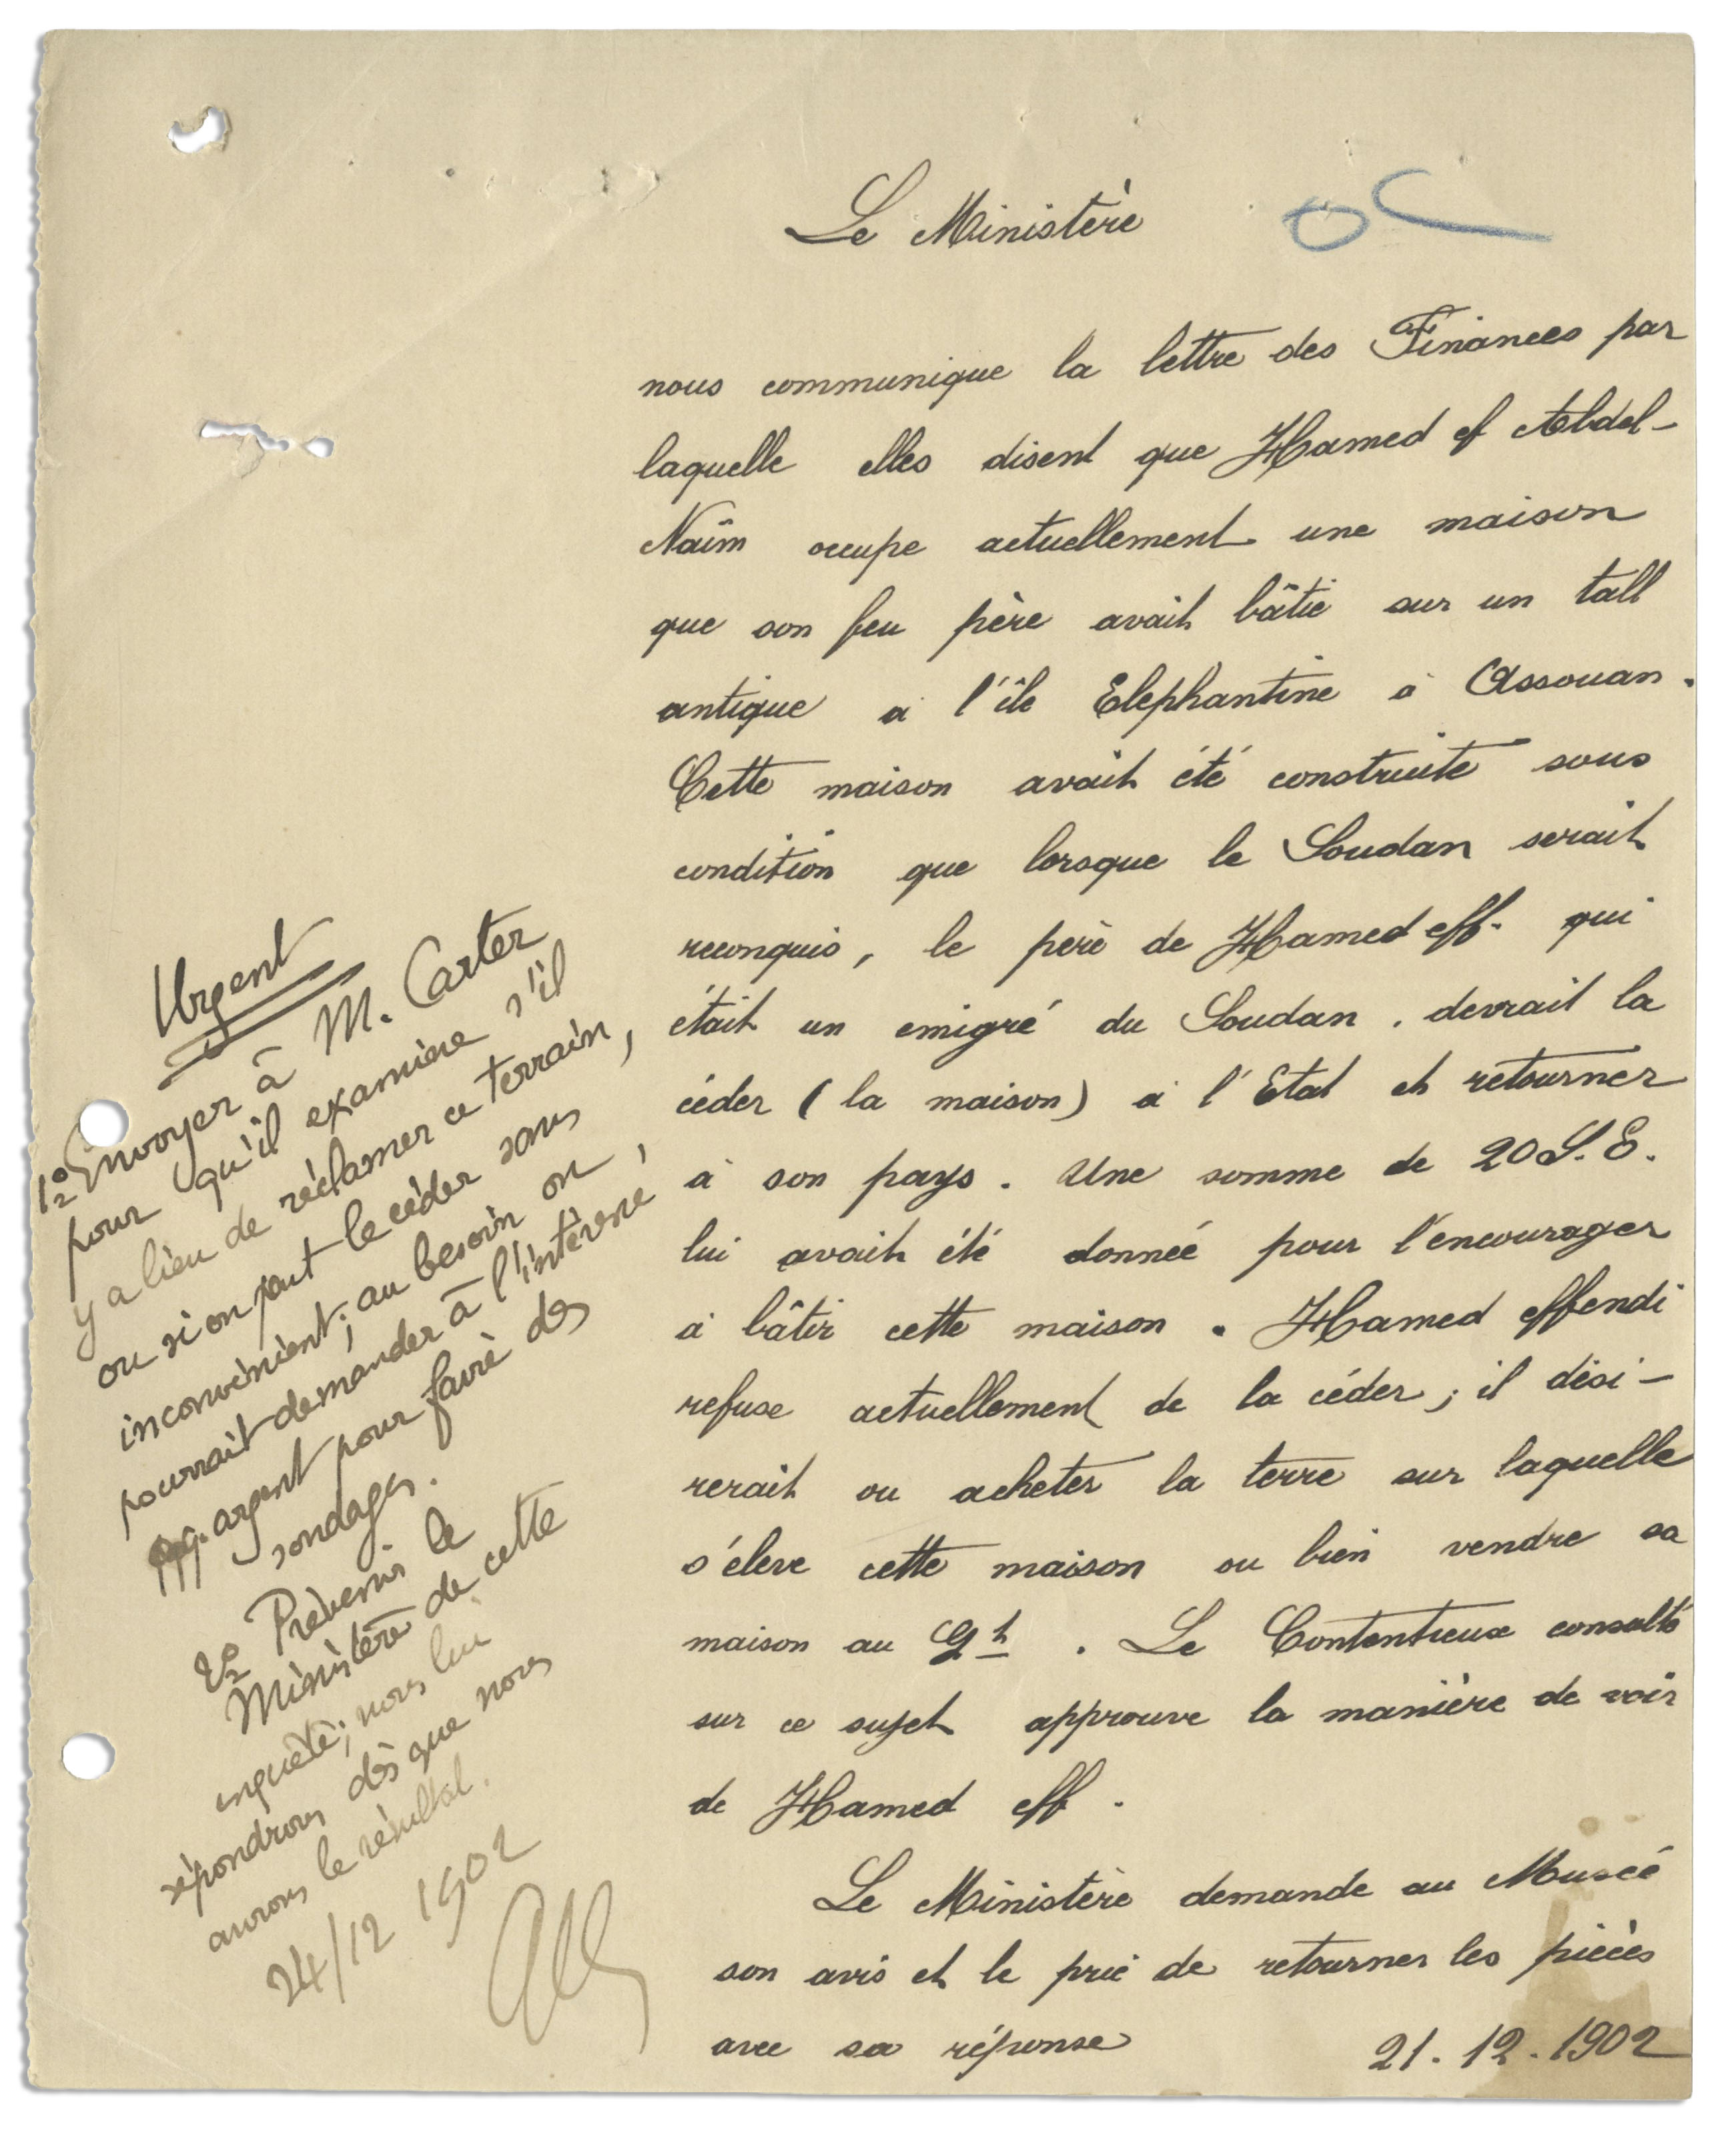 Le Ministère
nous communique la lettre des Finances par
laquelle elles disent que Hamed ef Abdel-
Naïm occupe actuellement une maison
que son feu père avait bâtie sur un tall
antique à l'île Elephantine à Assouan.
Cette maison avait été construite sous
condition que lorsque le Soudan serait
reconquis, le père de Hamed eff. qui
était un emigré du Soudan, devrait la
céder (la maison) à l'Etat et retourner
à son pays. Une somme de 20 L.E.
lui avait été donnée pour l'encourager
à bâtir cette maison. Hamed effendi
refuse actuellement de la céder; il dési-
rerait ou acheter la terre sur laquelle
s'éleve cette maison ou bien vendre sa
maison au Gt. Le Contentieux consulté
sur ce sujet approuve la manière de voir
de Hamed eff.
Le Ministère demande au Musée
son avis et le prie de retourner les pièces
avec sa réponse
21.12.1902
Urgent
1º Envoyer à M. Carter
pour qu'il examine s'il
y a lieu de réclamer ce terrain,
ou si on peut le céder sans
inconvénient; au besoin on
pourrait demander à l'intéressé,
argent pour faire des
sondages.
2º Prévenir le
Ministère de cette
enquête; nous lui
répondrons dès que nous
aurons le résultat.
24/12 1902